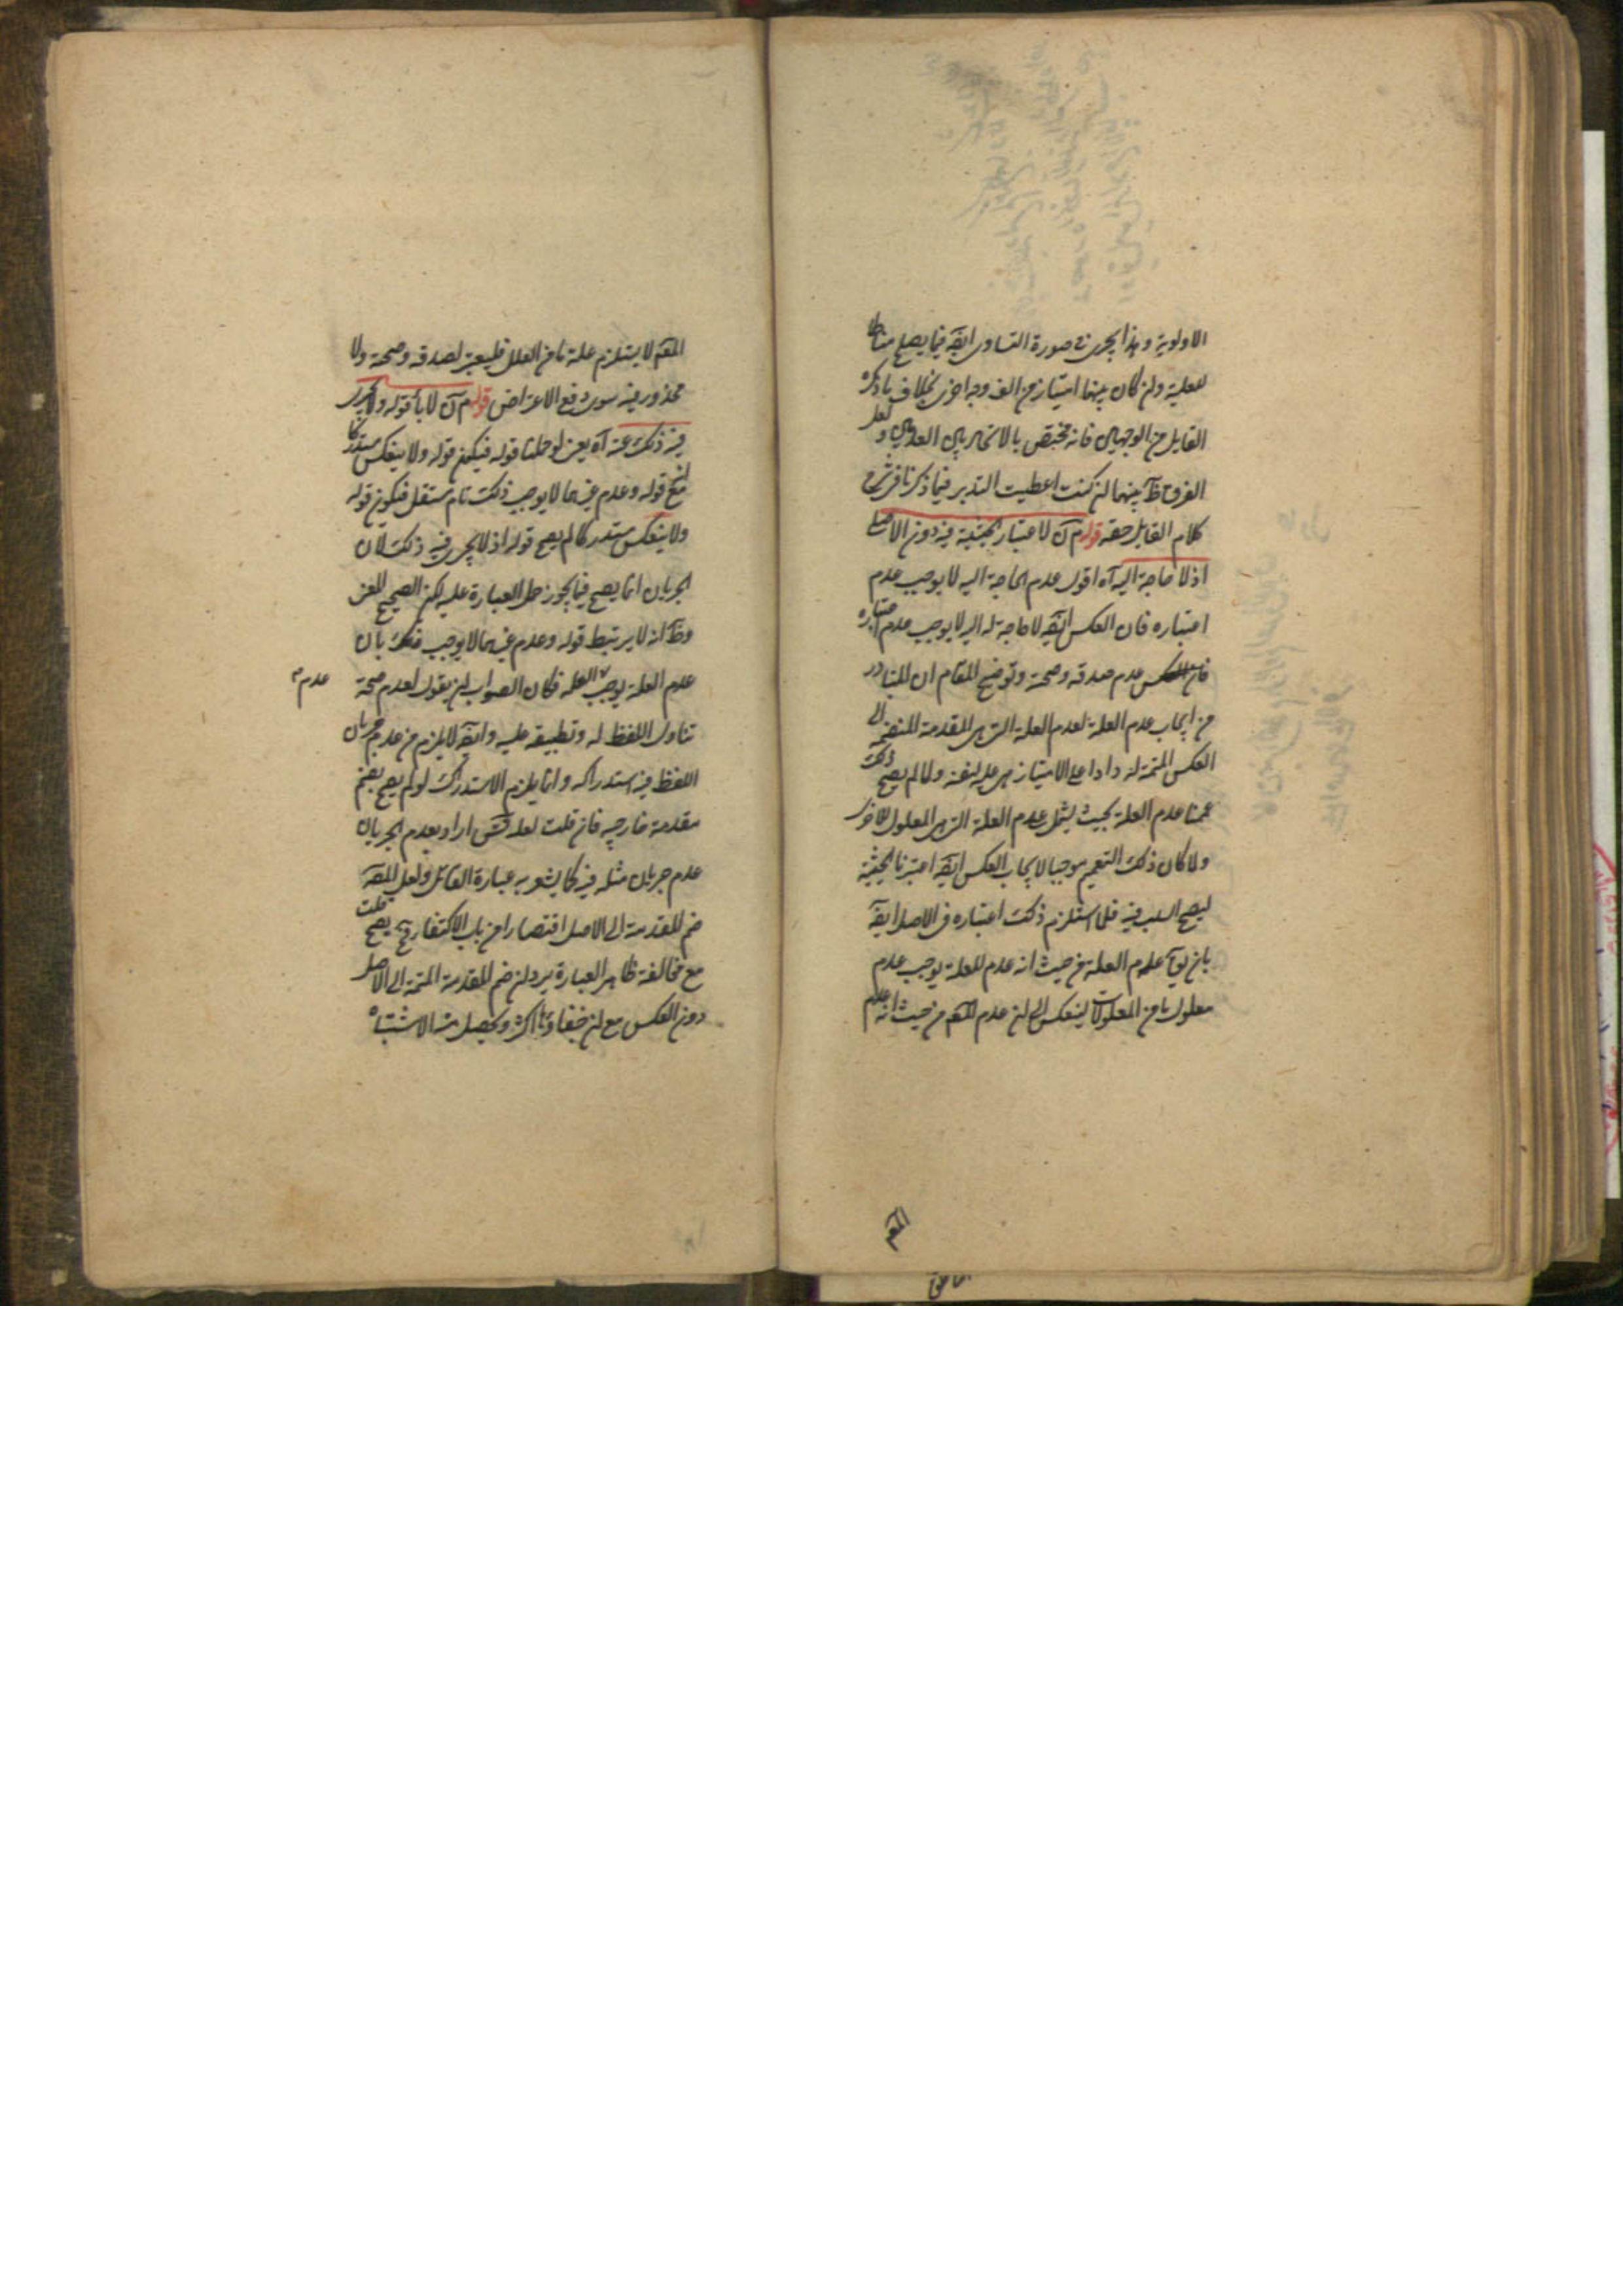 الاولوية وهذا يجرى فى صورة التساوى ايضً فيما يصلح مناطا
للعلية وان كان بينهما امتياز من الف وجه اخرى بخلاف ما ذكره
القايل من الوجهين فانه مختص بالانحاء بين العدمين ولعل
الفرق ظاَ بينهما ان كنت اعطيت التدبر فيما ذكرنا فى شرح
كلام القايل حقه قوله مَ نَ لاعتبار الحيثية فيه دون الاصل
اذ لا حاجة اليه آه اقول عدم الحاجة اليه لا يوجب عدم
اعتباره فان العكس ايضً لا حاجة له اليه لا يوجب عدم اعتباره
فى العكس عدم صدقه وصحته وتوضيح المقام ان المتبادر
من ايجاب عدم العلة لعدم العلة التى هى المقدمة المنضمة الى
العكس المتممة له وادا على الامتياز هى علية لنفسه ولما لم يصح ذلك
عممنا عدم العلة بحيث يشمل عدم العلة التى هى المعلول لاخرى
ولما كان ذلك التعميم موجبا لايجاب العكس ايضً اعتبرنا الحيثية
ليصح السلب فيه فلما استلزم ذلك اعتباره فى الاصل ايضً
بان يقَ عدم العلة من حيث انه عدم للعلة يوجب عدم
معلول ما من المعلولات لينعكس الى ان عدم المعَ من حيث انه عدم
المعَ
المعَ لا يستلزم علة ما من العلل فليعتبر لصدقه وصحته ولا
محذور فيه سوى دفع الاعتراض قوله مَ نَ لاباَ قوله ولا يجرى
فيه ذلك عنه آه يعنى لو حملنا قوله فيكون قوله ولا ينعكس مستدركا
مع قوله وعدم غيرهما لا يوجب ذلك تام مستقل فيكون قوله
ولا ينعكس مستدركا لم يصح قوله اذ لا يجرى فيه ذلك لان
الجريان انما يصح فيما يجوز حمل العبارة عليه لكن الصحيح المعنى
وظاَ انه لا يرتبط قوله وعدم غيرهما لا يوجب ذلك بان
عدم العلة يوجب العلة فكان الصواب ان يقول لعدم صحة
عدم
تناول اللفظ له وتطبيقه عليه وايضً لا يلزم من عدم جريان
اللفظ فيه استدراكه وانما يلزم الاستدراك لو لم يصح بضم
مقدمة خارجية فان قلت لعله قَسَ اراد بعدم الجريان
عدم جريان مثله فيه كما يشعر به عبارة القائل ولعل المصَ
ضم المقدمة الى الاصل اقتصارا من باب الاكتفاء فح يصح قلت
مع مخالفة ظاهر العبارة يرد ان ضم المقدمة المتممة الى الاصل
دون العكس مع ان خفاءه اكثر ويحصل منه الاشتباه